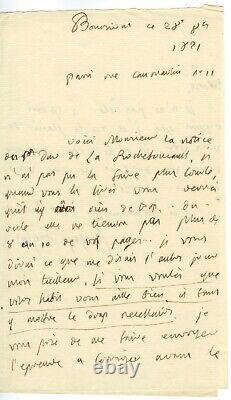 ce 28
1821
paris rue caumartin n° 11
voici Monsieur la notice
du Duc de La Rochefoucault, je
n'ai pas pu la faire plus courte,
quand vous la lirez vous verrez
qu'il n'y a rien de trop. 
elle ne tiendra pas plus de
8 ou 10 de vos pages. je vous
dirai ce que me disait l'autre jour
mon tailleur, si vous voulez que
votre habit vous aille bien il faut
y mettre le drap nécessaire. je
vous prie de me faire envoyer
l'épreuve a corriger avant le